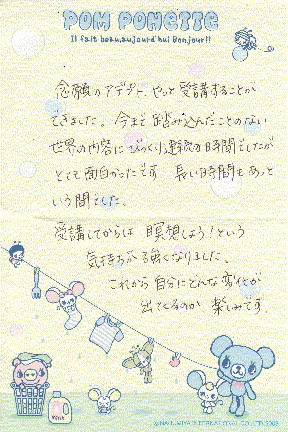 POM PONETTE
Il fait beau,aujourd'hui Bonjour!!
念願のアデプト、やっと受講することが
できました。今まで踏み込んだことのない
世界の内容にびっくり連続の時間でしたが
とても面白かったです 長い時間もあっと
いう間でした。
受講してからは 瞑想しよう！という
気持ちが強くなりました。
これから自分にどんな変化が
出てくるのか 楽しみです